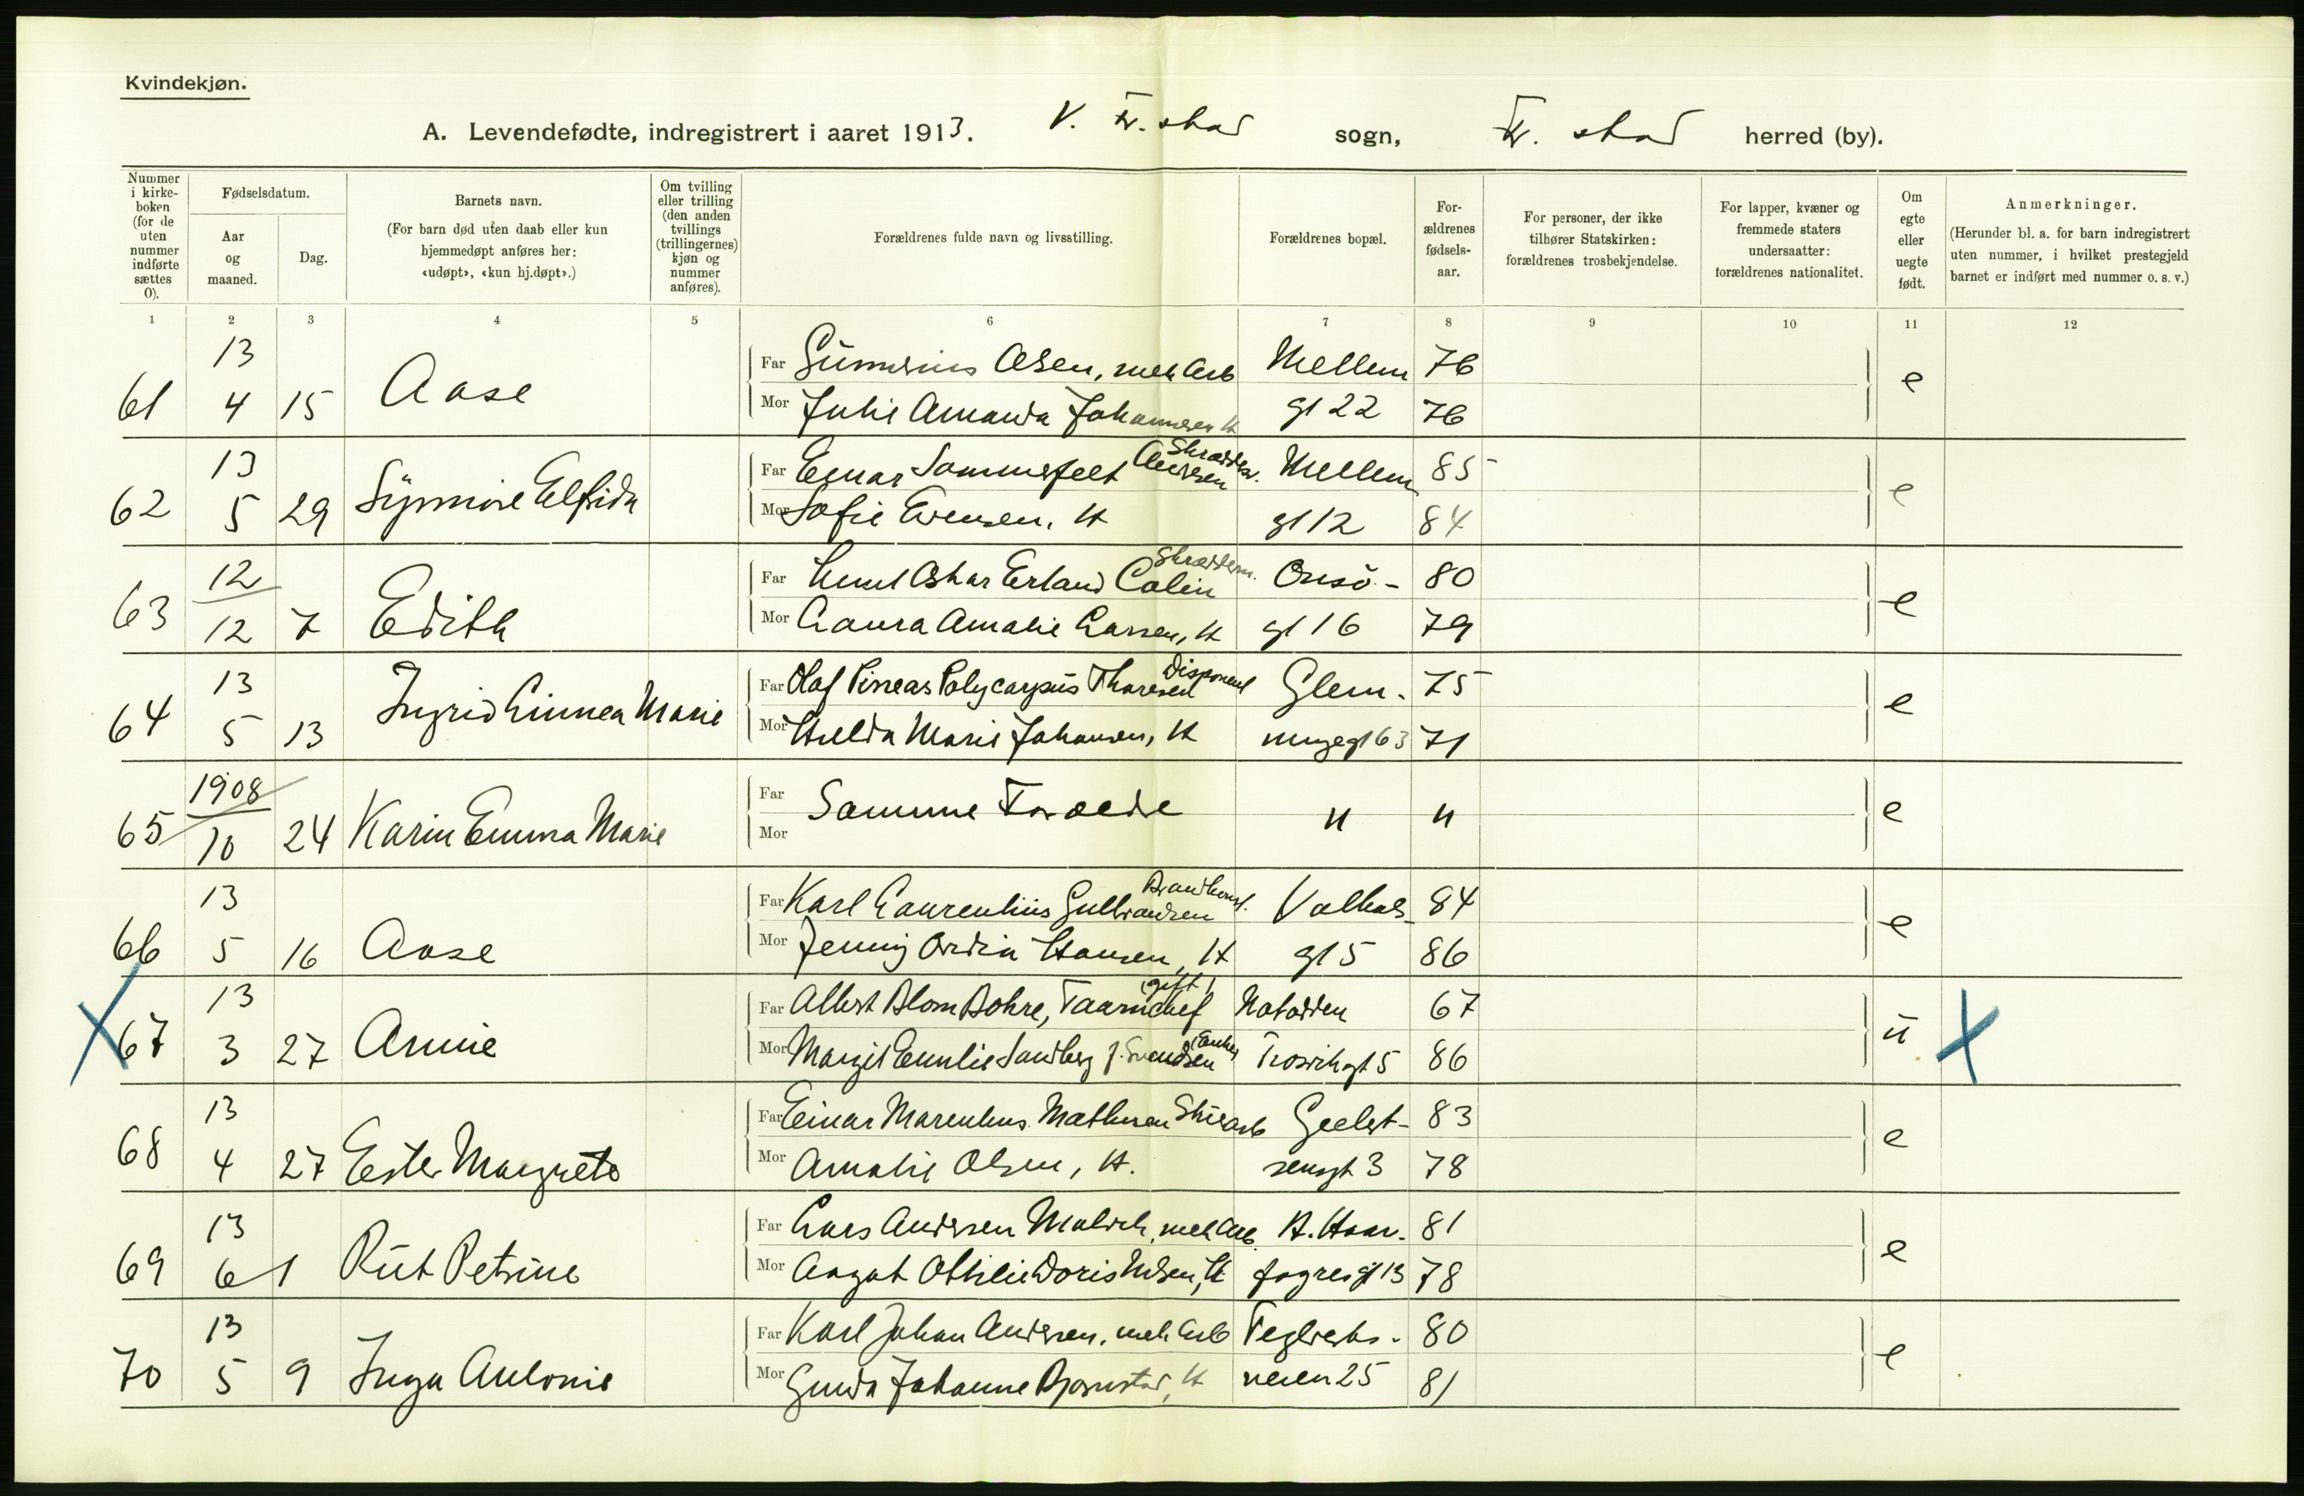 Kvindekjøn.
A. Levendefødte, indregistrert i aaret 1913. V. Fr. stad sogn, Fr. stad herred (by).
Nummer i kirke-boken (for de uten nummer indførte sættes 0).
Fødselsdatum.
Aar og maaned.
Dag.
Barnets navn.
(For barn død uten daab eller kun hjemmedøpt anføres her: «udøpt», «kun hj.døpt».)
Om tvilling eller trilling (den anden tvillings (trillingernes) kjøn og nummer anføres).
Forældrenes fulde navn og livsstilling.
Forældrenes bopæl.
For-ældrenes fødsels-aar.
For personer, der ikke tilhører Statskirken: forældrenes trosbekjendelse.
For lapper, kvæner og fremmede staters undersaatter: forældrenes nationalitet.
Om egte eller uegte født.
Anmerkninger.
(Herunder bl. a. for barn indregistrert uten nummer, i hvilket prestegjeld barnet er indført med nummer o. s. v.)
1 2 3 4 5 6 7 8 9 10 11 12
13 Far Olsen, mek Arb Mellem 76
61 4 15 Aase Mor Julie Amanda Johannesen H gt 22 76 e
13 Far Einar Sommerfelt Andersen Skrædder. Mellem 85
62 5 29 Elfrida Mor Sofie Evensen, H gt 12 84 e
12 Far Oskar Erland Skrædderm. Onsø- 80
63 12 7 Edith Mor Laura Amalie Larsen, H gt 16 79 e
13 Far Olaf Pineas Polycarpus Thoresen Disponent Glem- 75
64 5 13 Ingrid Linnea Marie Mor Hulda Marie Johansen, H mengegt 63 71 e
1908 Far Samme Forælde
65 10 24 Karin Emma Marie Mor " " e
13 Far Karl Laurentius Gulbrandsen Brandkonst. Valhal- 84
66 5 16 Aase Mor Jenny Ordia Hansen, H gt 5 86 e
13 Far Albert Blom Bohre, (gift) Notodden 67
67 3 27 Annie Mor Margit Emilie Sandberg f. Svendsen (Enke) Trosvikgt 5 86 u
13 Far Einar Marenius Mathisen Geelst- 83
68 4 27 Ester Margrete Mor Amalie Olsen, H. sensgt 3 78 e
13 Far Lars Andersen Malvik, mek Arb. H. Haar- 81
69 6 1 Rut Petrine Mor Aagot Ottilie Doris Nilsen, H fagresgt 13 78 e
13 Far Karl Johan Andersen, mek Arb Teglverks- 80
70 5 9 Inga Antonie Mor Gunda Johanne Bjørnstad, H veien 25 81 e